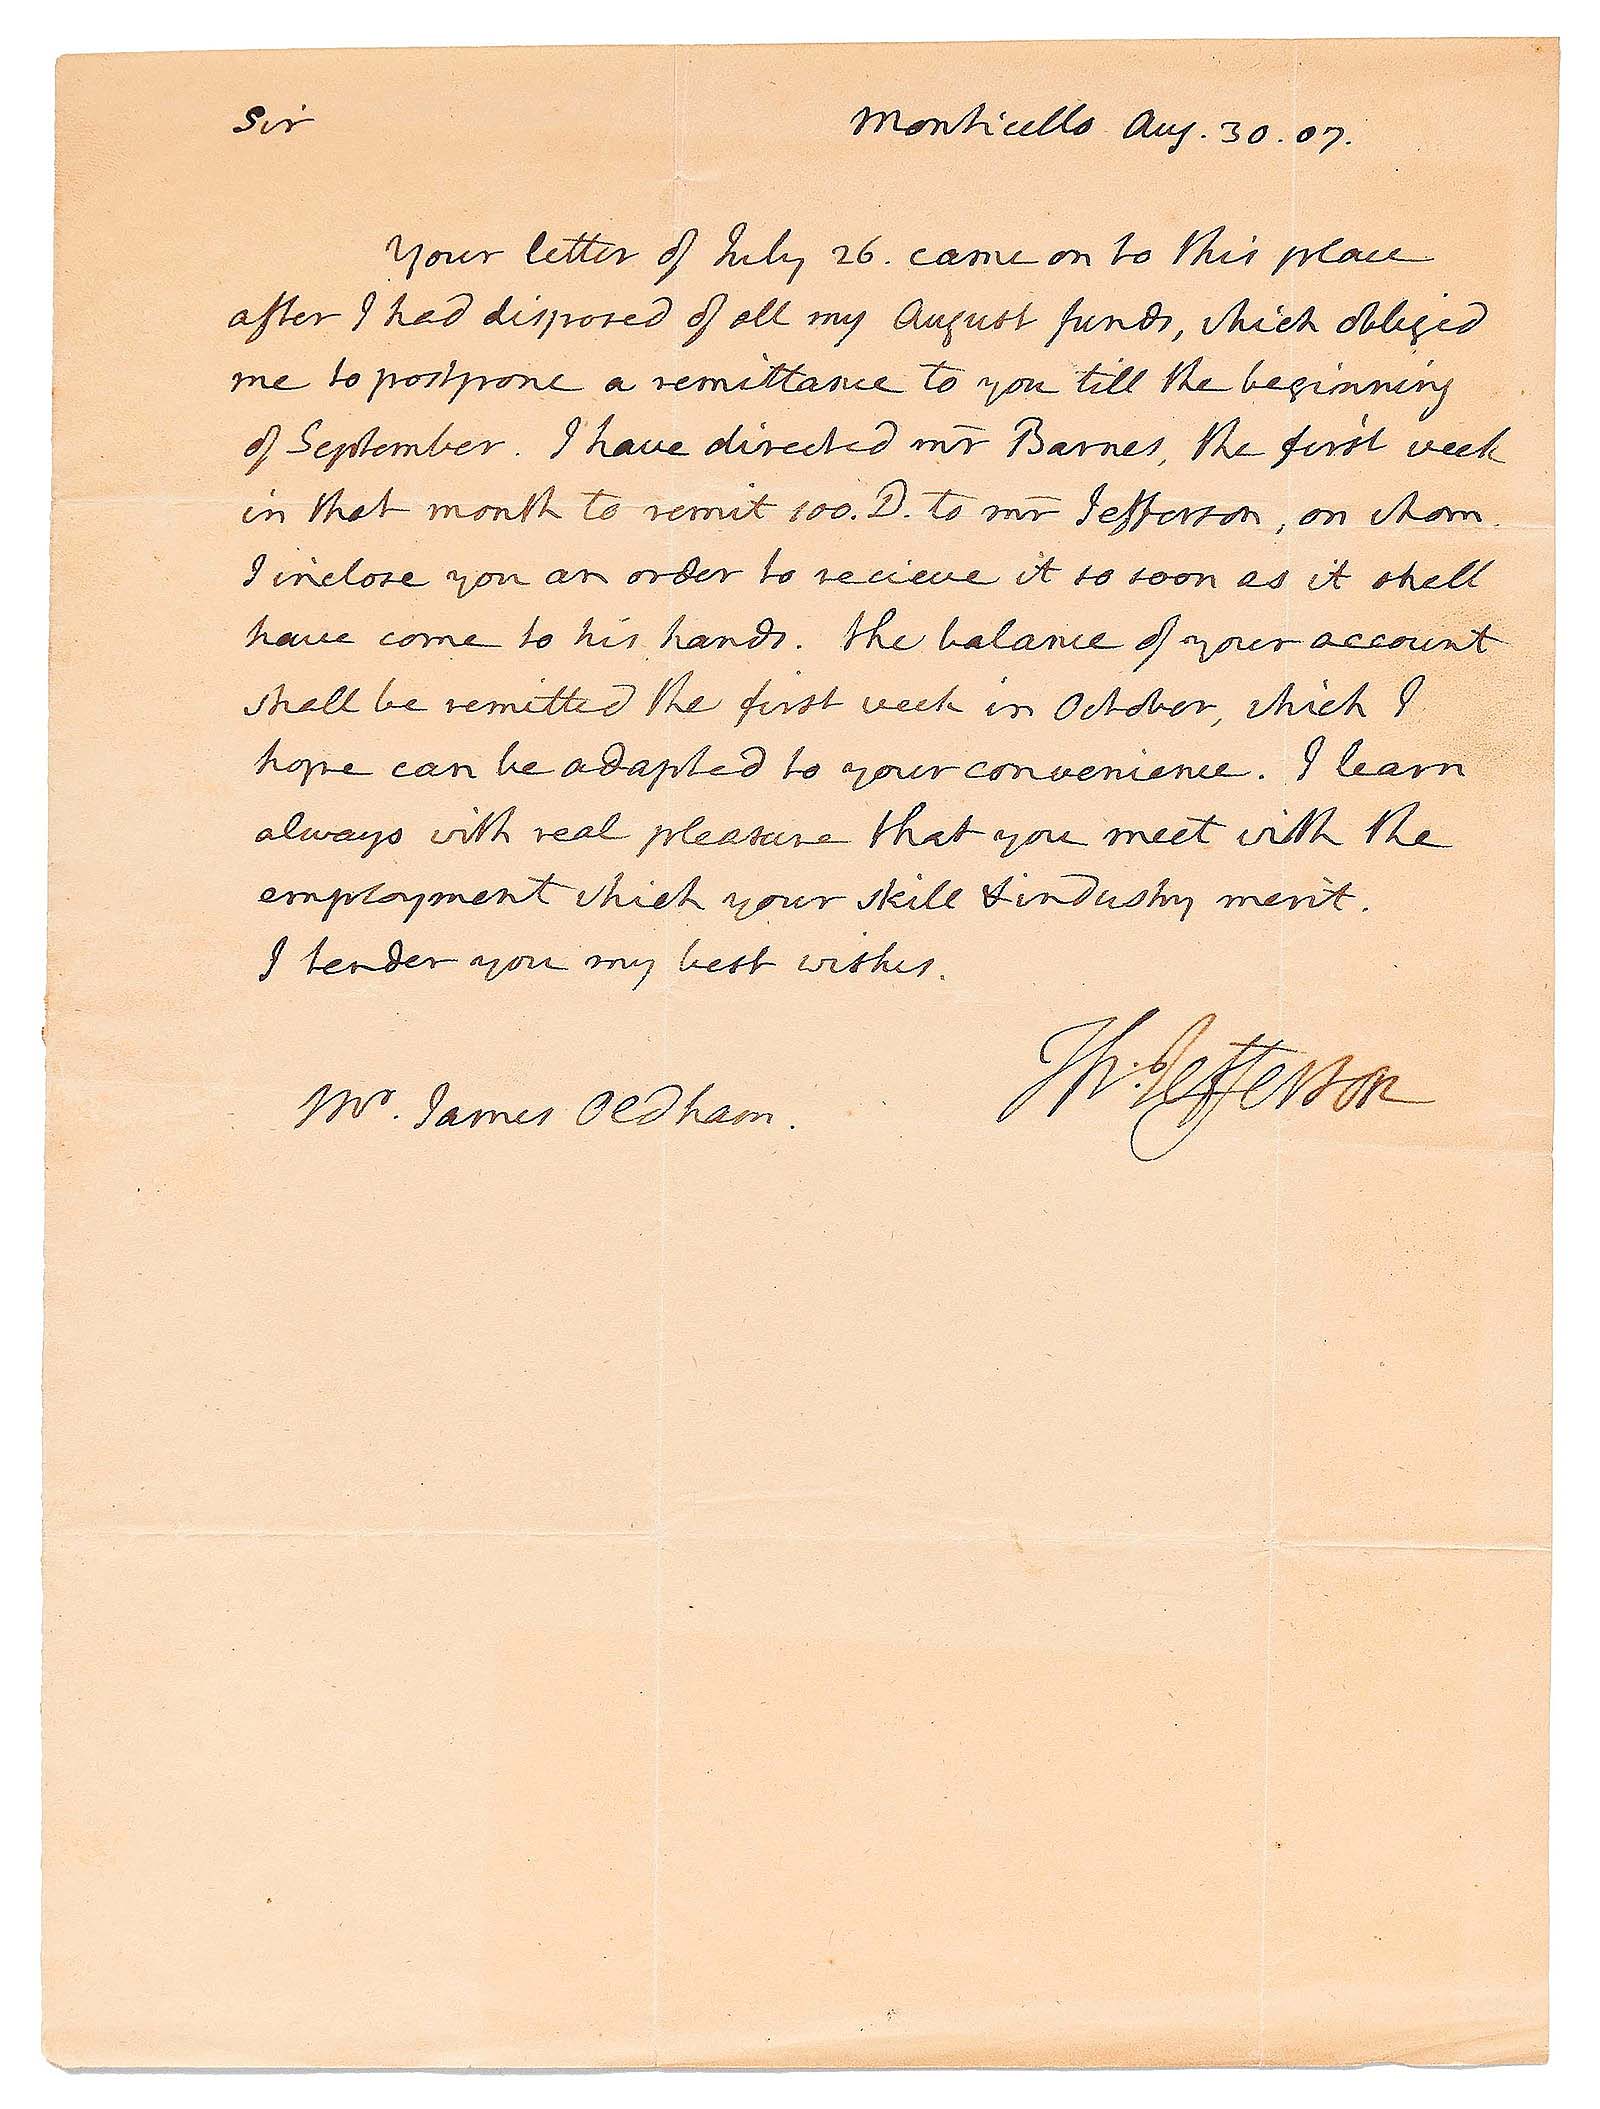 Sir
Monticello Aug. 30. 07.
Your letter of July 26. came on to this place
after I had disposed of all my August funds, which obliged
me to postpone a remittance to you till the beginning
of September. I have directed mr Barnes, the first week
in that month to remit 100. D. to mr Jefferson, on whom
I inclose you an order to recieve it so soon as it shall
have come to his hands. the balance of your account
shall be remitted the first week in October, which I
hope can be adapted to your convenience. I learn
always with real pleasure that you meet with the
employment which your skill & industry merit.
I tender you my best wishes.
Th: Jefferson
Mr. James Oldham.